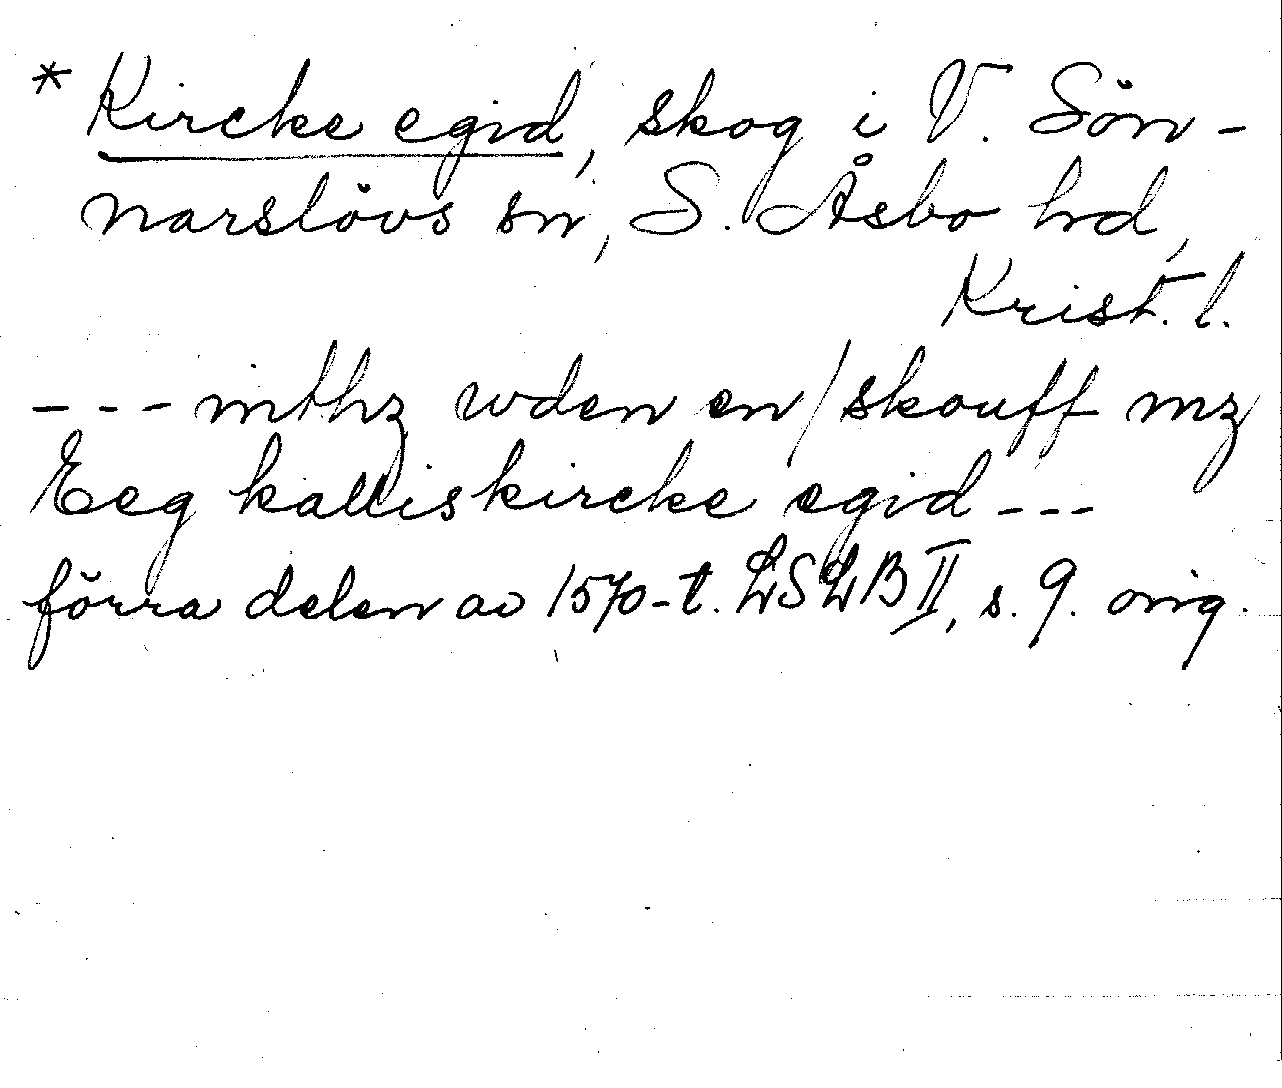 * Kircke egid, skog i V. Sön-
narslövs sn, S. Åsbo hd,
Krist. l.
--- mthz wden en/skouff mz
Eeg kalliskircke egid ---
förra delen av 1570-t. LSLB II, s. 9. orig.